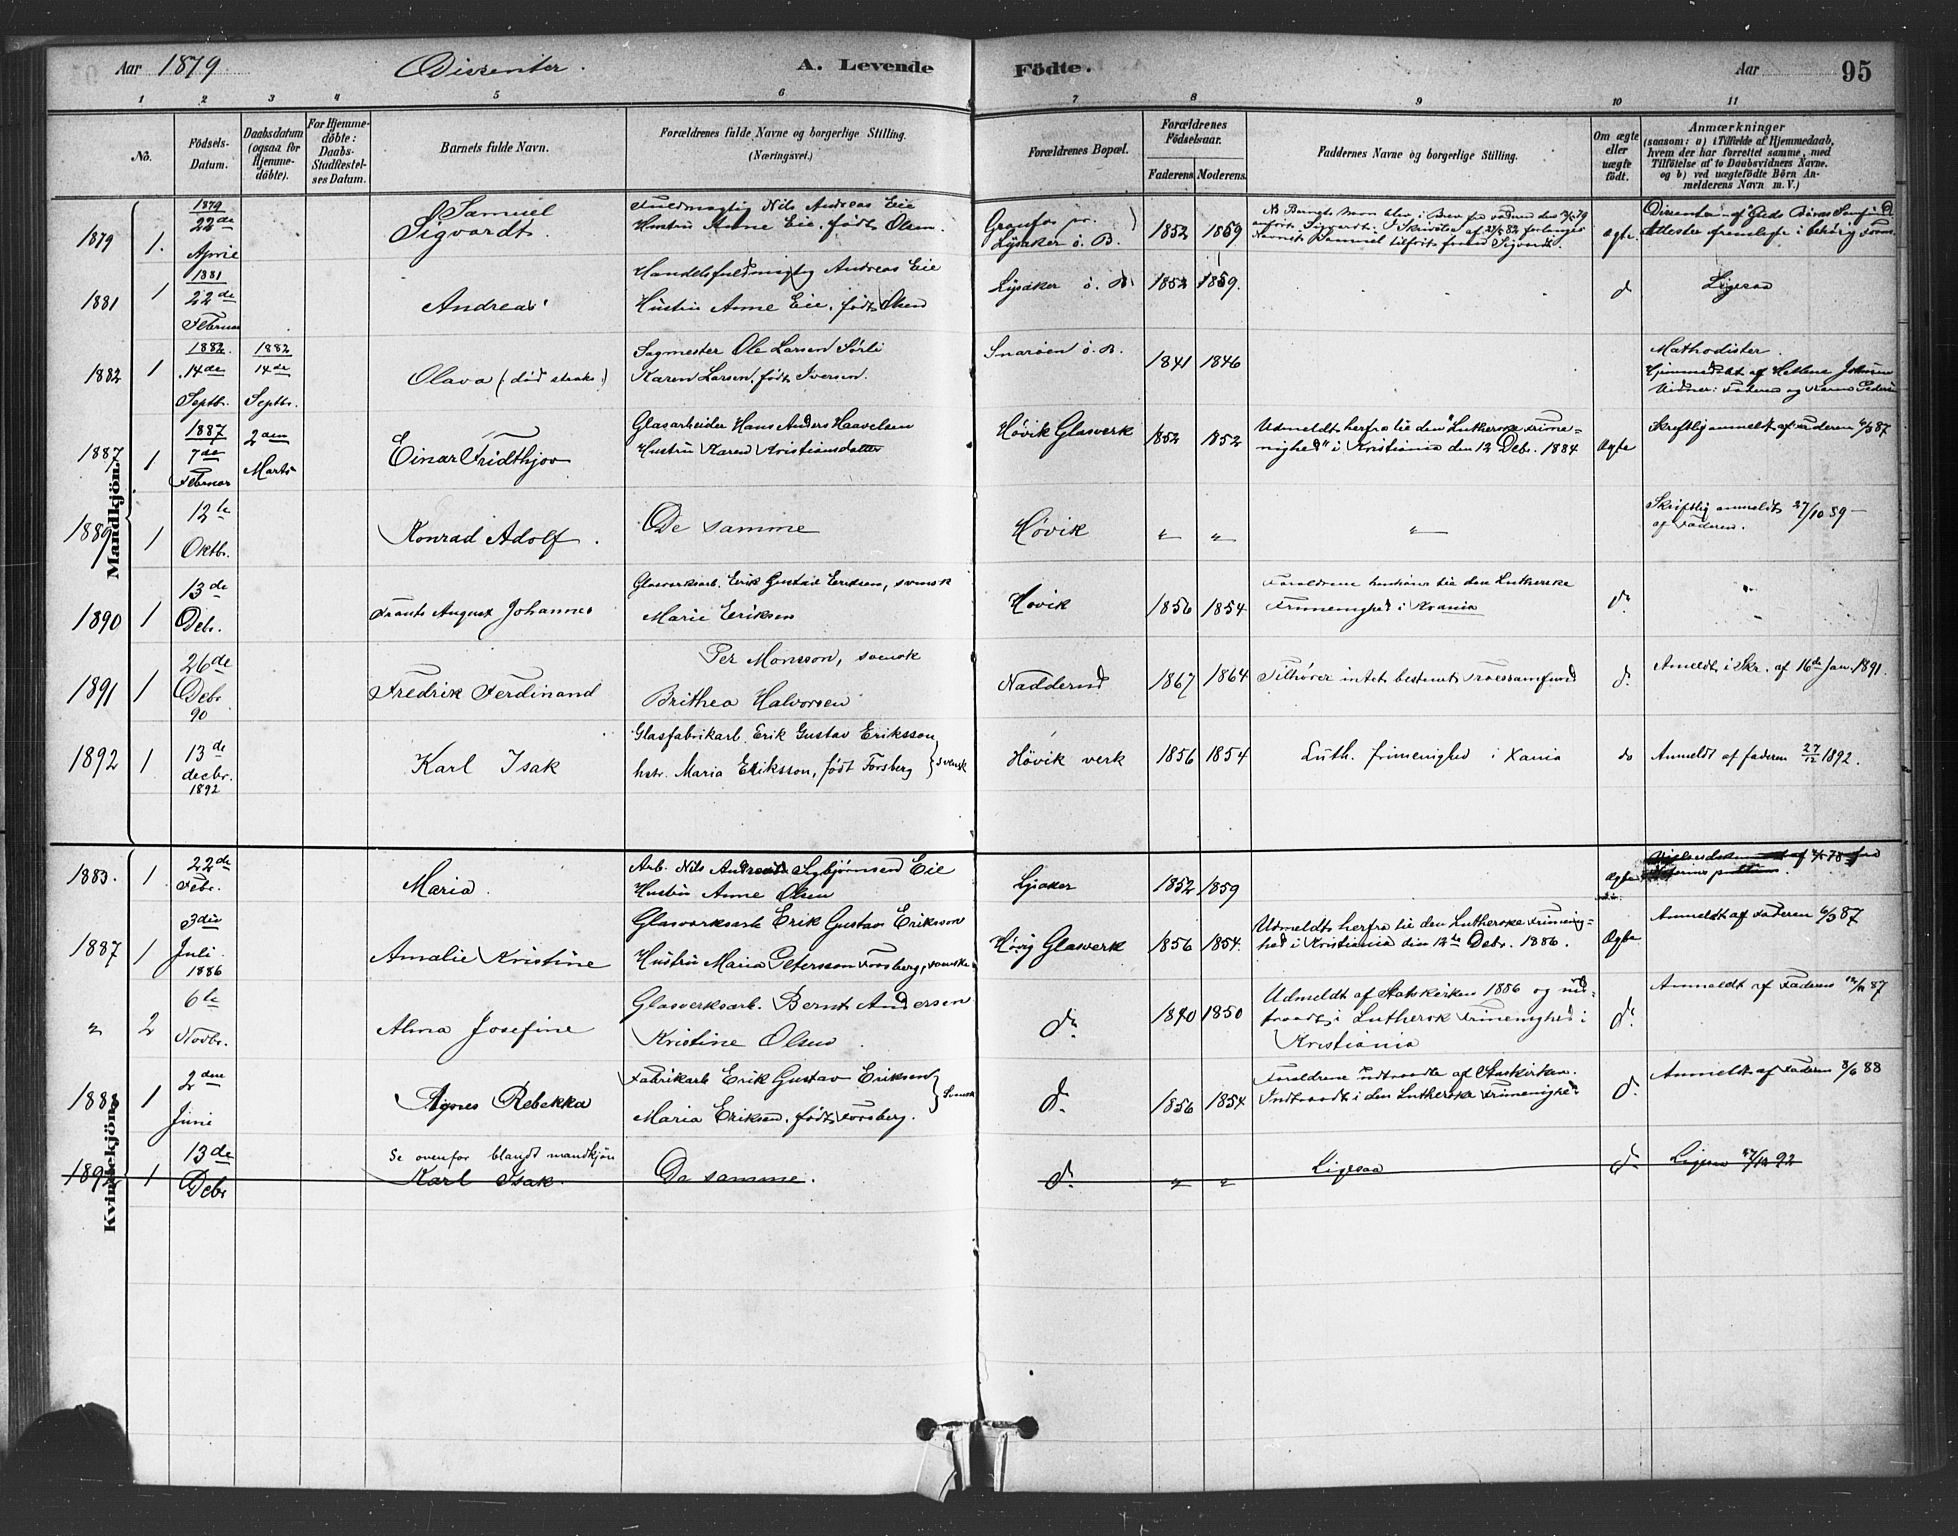 Aar 1879 Dissenter. A. Levende Födte. Aar 95
1 2 3 4 5 6 7 8 9 10 11
No.
Födsels-Datum.
Daabsdatum (ogsaa for Hjemme-döbte).
For Hjemme-döbte: Daabs-Stadfæstel-ses Datum.
Barnets fulde Navn.
Forældrenes fulde Navne og borgerlige Stilling.
(Næringsvei.)
Forældrenes Bopæl.
Forældrenes Födselsaar.
Faderens. Moderens.
Faddernes Navne og borgerlige Stilling.
Om ægte eller uægte födt.
Anmærkninger
(saasom: a) i Tilfælde af Hjemmedaab,
hvem der har forrettet samme, med
Tilföielse af to Daabsvidners Navne.
og b) ved uægtefödte Börn An-
melderens Navn m. V.)
Mandkjön.
1879 1. 1879 22de April
Samuel
Sigvardt.
Fuldmægtig Nils Andreas Eie
Hustru Anne Eie, födt Olsen.
Lysaker ö. B. 1852 1859
Ægte.
1881 1 1881 22de Februar
Andreas
Handelsfuldmægtig Andreas Eie
Hustru Anne Eie, födt Olsen
Lysaker ö. B. 1852 1859.
do
Ligesaa
1882 1 1882. 14de Septbr. 1882 14de Septbr.
Olava (: död straks :)
Sagmester Ole Larsen Sørli
Karen Larsen, födt Iversen.
Snarøen ö. B. 1841 1846
Methodister.
1887 1 1887 7de Februar 2den Marts
Einar Fridthjov
Glasarbeider Hans Anders Haavelsen
Hustru Karen Kristiansdatter
Høvik Glasverk 1852 1852
Udmeldt herfra til den "Lutherske Frime-
nighed" i Kristiania den 12 Debr. 1884
Ægte
Skriftlig anmeldt af Faderen 6/3 87
1889 1 12te Oktbr.
Konrad Adolf.
De samme
Høvik " " "
Skriftlig anmeldt 27/10 89
af Faderen.
1890 1 13de Debr.
Frants August Johannes
Glasverksarb. Erik Gustav Eriksen, svensk
Marie Eriksen
Høvik 1856 1854
Forældrene henhøre til den Lutherske
Frimenighed i Krania
do
"
1891 1 26de Debr 90
Fredrik Ferdinand
Per Monsson, svensk
Brithea Halvorsen
Nadderud 1867 1864
Tilhører intet bestemt Troessamfund
do
Anmeldt i Skr. af 16de Jan. 1891.
1892 1 13de decbr. 1892
Karl Isak
Glasfabrikarb. Erik Gustav Eriksson
hstr. Maria Eriksson, født Forsberg } svensk
Høvik verk 1856 1854
Luth. frimenighed i Xania
do
Anmeldt af faderen 27/12 1892.
Kvindekjön.
1883. 1 22de Febr.
Maria.
Arb. Nils Andreas Eie
Hustru Anne Olsen
Lysaker 1852 1859
Ægte
1887 1 3die Juli 1886
Amalie Kristine
Glasverksarb Erik Gustav Eriksson
Hustru Maria Petersson Forsberg, svenske
Høvig Glasverk 1856 1854.
Udmeldt herfra til den Lutherske Frimenig-
hed i Kristiania den 12te Debr. 1886.
Ægte
Anmeldt af Faderen 6/3 87
" 2 6te Novbr.
Alma Josefine
Glasverksarb. Bernt Andersen
Kristine Olsen
do 1840 1850
Udmeldt af Statskirken 1886 og ind-
traadt i Luthersk Frimenighed i
Kristiania
do
Anmeldt af Faderen 87
1888 1 2den Juni
Agnes Rebekka
Fabrikarb Erik Gustav Eriksen
Maria Eriksen, født Forsberg. } Svensk
do 1856 1854
Forældrene udtraadte af Statskirken.
Indtraadt i den Lutherske Frimenighed
do
Anmeldt af Faderen 3/6 88
1892 1 13de Debr
Se ovenfor blandt mandkjøn
Karl Isak.
De samme.
do " "
Ligesaa
do
Ligesaa 27/12 92